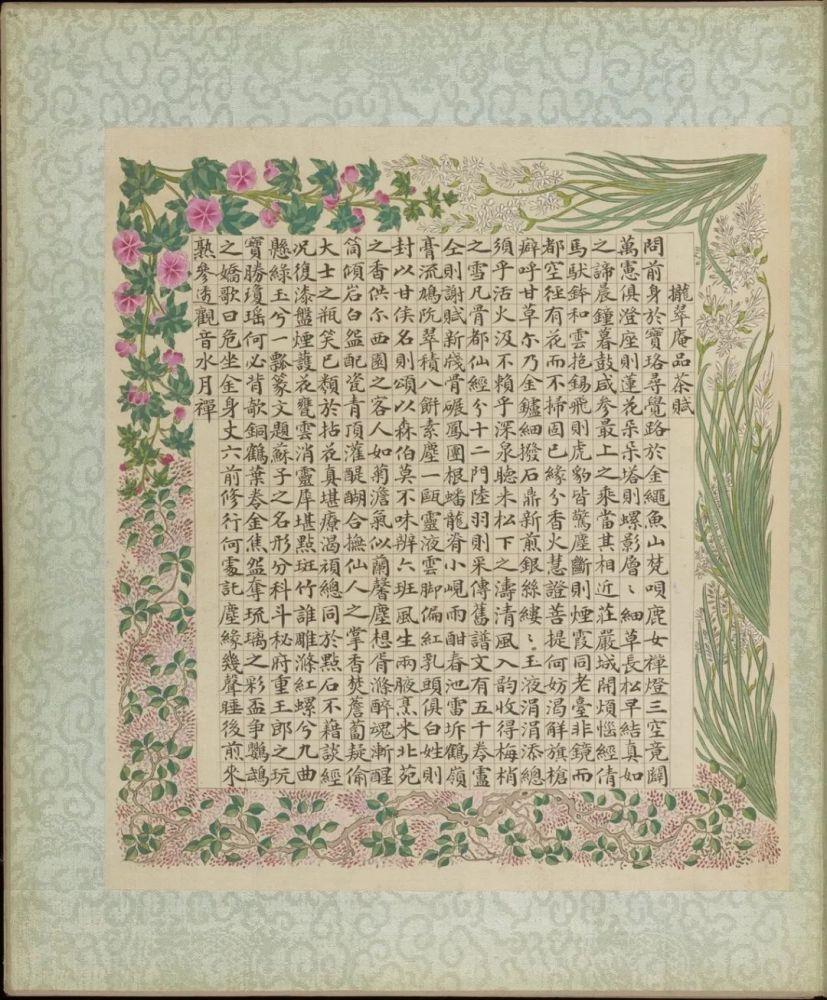 攏翠庵品茶賦
問前身於寶珞尋覺路於金繩魚山梵唄鹿女禪燈三空竟闢
萬慮俱澄座則蓮花朵朵塔則螺影層〻細草長松早結真如
之諦晨鐘暮鼓咸參最上之乘當其相近莊嚴城開煩惱經倩
馬馱鉢和雲抱錫飛則虎豹皆驚塵斷則煙霞同老臺非鏡而
都空徑有花而不掃固已緣分香火慧證菩提何妨渴解旗槍
癖呼甘草尔乃金鑪細撥石鼎新煎銀絲縷〻玉液涓涓添總
須乎活火汲不賴乎深泉聽來松下之濤清風入韵收得梅梢
之雪凡骨都仙經分十二門陸羽則采傳舊譜文有五千卷盧
仝則謝賦新牋骨碾鳳團根蟠龍脊小峴雨酣春池雷坼鶴嶺
膏流鳩阬翠積八餅素塵一甌靈液雲脚偏紅乳頭俱白姓則
封以甘侯名則頌以森伯莫不味辨六班風生兩腋烹來北苑
之香供尔西園之客人如菊澹氣似蘭馨塵想胥滌醉魂漸醒
筒傾岩白盌配瓷青頂灌醍醐合撫仙人之掌香焚薝蔔疑偷
大士之瓶笑已類於拈花真堪療渴頑總同於點石不藉談經
况復漆盤煙護花甕雲消靈犀堪點斑竹誰雕滌紅螺兮九曲
懸綠玉兮一瓢篆文題蘇子之名形分科斗秘府重王郎之玩
寶勝瓊瑤何必背欹銅鶴葉卷金焦盌奪琉璃之彩盃争鸚鵡
之嬌歌曰危坐金身丈六前修行何處託塵緣幾聲睡後煎來
熟參透觀音水月禪